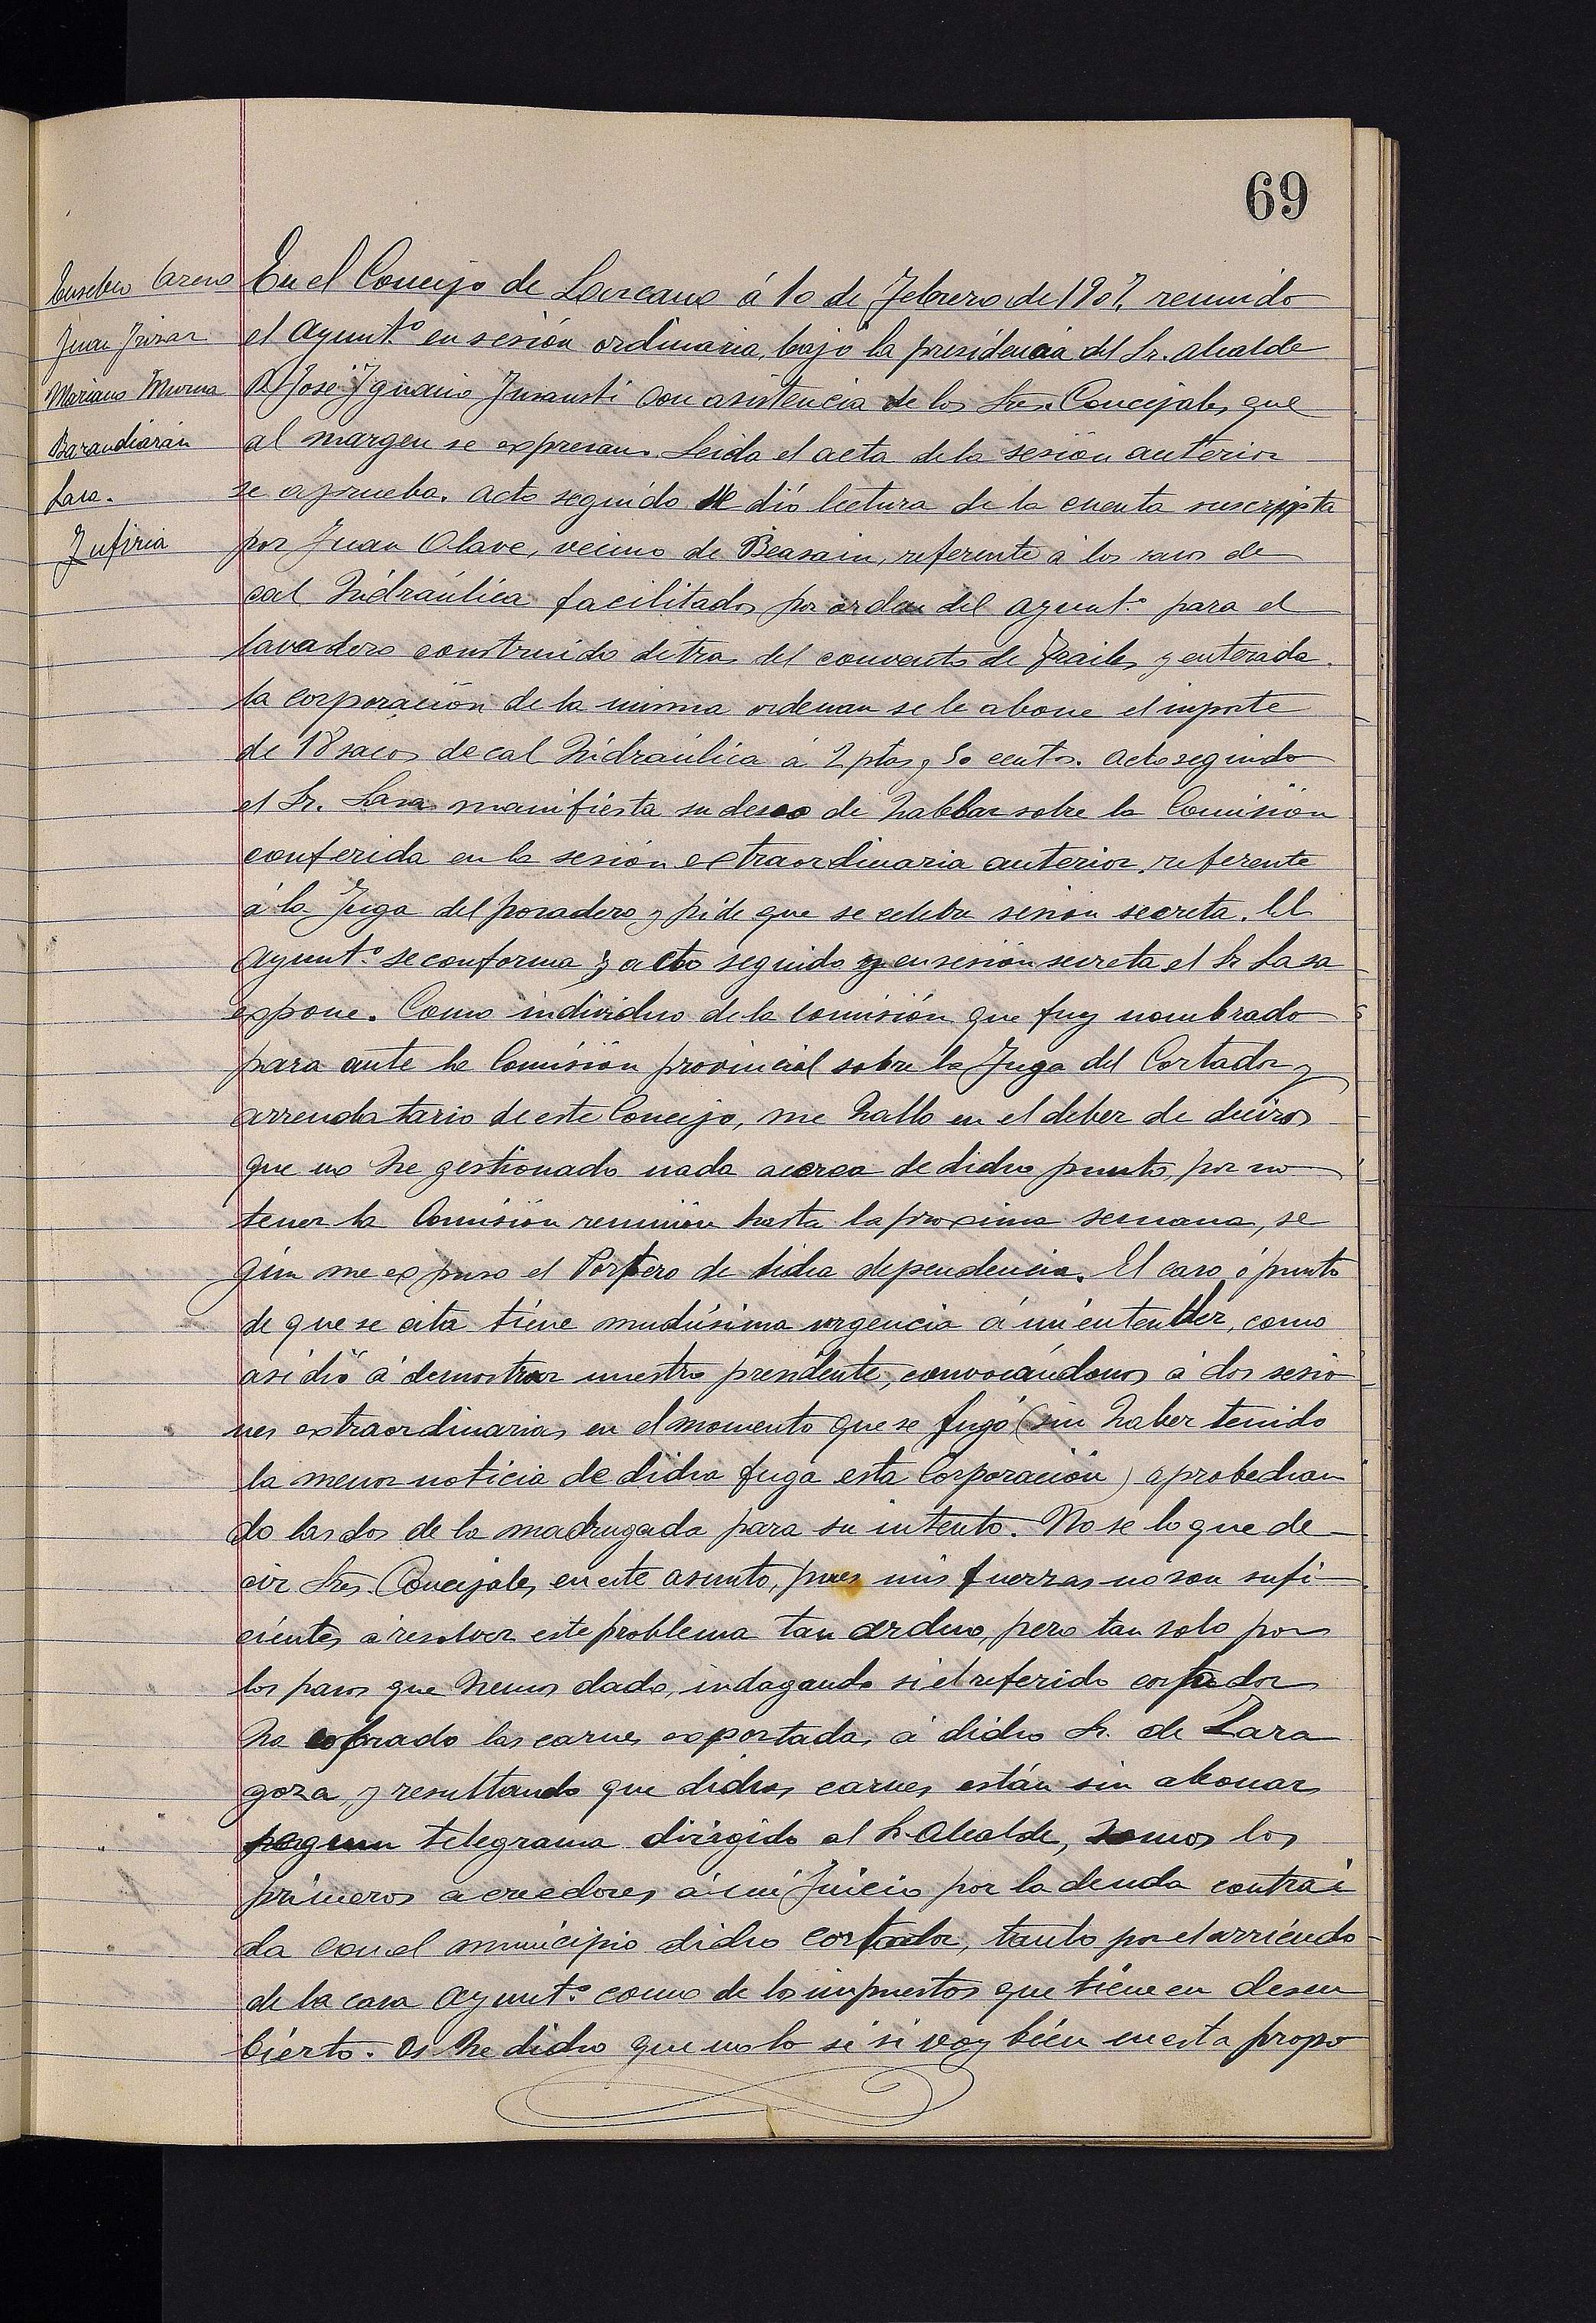 69
Eusebio
Juan Irizar
Mariano Murua
Barandiarán
Lasa.
Zufiria
En el Concejo de Lazcano á 10 de Febrero de 1907, reunido
el Ayunt.º en sesión ordinaria, bajo la presidencia del Sr. Alcalde
D. José Ignacio Insausti con asistencia de los Sres. Concejales que
al margen se expresan. Leida el acta de la sesión anterior
se aprueba. Acto seguido se dió lectura de la cuenta suscripta
por Juan Olave, vecino de Beasain, referente á los sacos de
cal hidráulica facilitados por orden del Ayunt.º para el
lavadero construido detras del convento de Frailes y enterada
la corporación de la misma ordenan se le abone el importe
de 18 sacos de cal hidraúlica á 2 ptas y 50 cents. Acto seguido
el Sr. Lasa manifiesta su deseo de hablar sobre la Comisión
conferida en la sesión extraordinaria anterior, referente
á la Fuga del posadero y pide que se celebre sesion secreta. El
Ayunt.º se conforma y acto seguido y en sesión secreta el Sr Lasa
expone. Como individuo de la comisión que fuy nombrado
para ante la Comisión provincial sobre la Fuga del Cortador y
arrendatario de este Concejo, me hallo en el deber de deciros
que no he gestionado nada acerca de dicho punto, por no
tener la Comisión reunión hasta la proxima semana, se
gún me expuso el Portero de dicha dependencia. El caso ó punto
de que se cita tiene muchísima urgencia á mi entender, como
asi dió á demostrar nuestro presidente, convocándonos á dos sesio
nes extraordinarias en el momento que se fugó (sin haber tenido
la menor noticia de dicha fuga esta Corporación) aprobechan
do las dos de la madrugada para su intento. No se lo que de
cir Sres. Concejales, en este asunto, pues mis fuerzas no son sufi
cientes á resolver este problema tan arduo, pero tan solo por
los pasos que hemos dado, indagando si el referido cortador
ha cobrado las carnes exportadas á dicho Sr. de Zara
goza, y resultando que dichas carnes están sin abonar
segun telegrama dirigido al Sr. Alcalde, somos los
primeros acreedores á mi Juicio por la deuda contrai
da con el municipio dicho cortador, tanto por el arriendo
de la casa Ayunt.º como de los impuestos que tiene en descu
bierto. Os he dicho que no lo sé si voy bién en esta propo